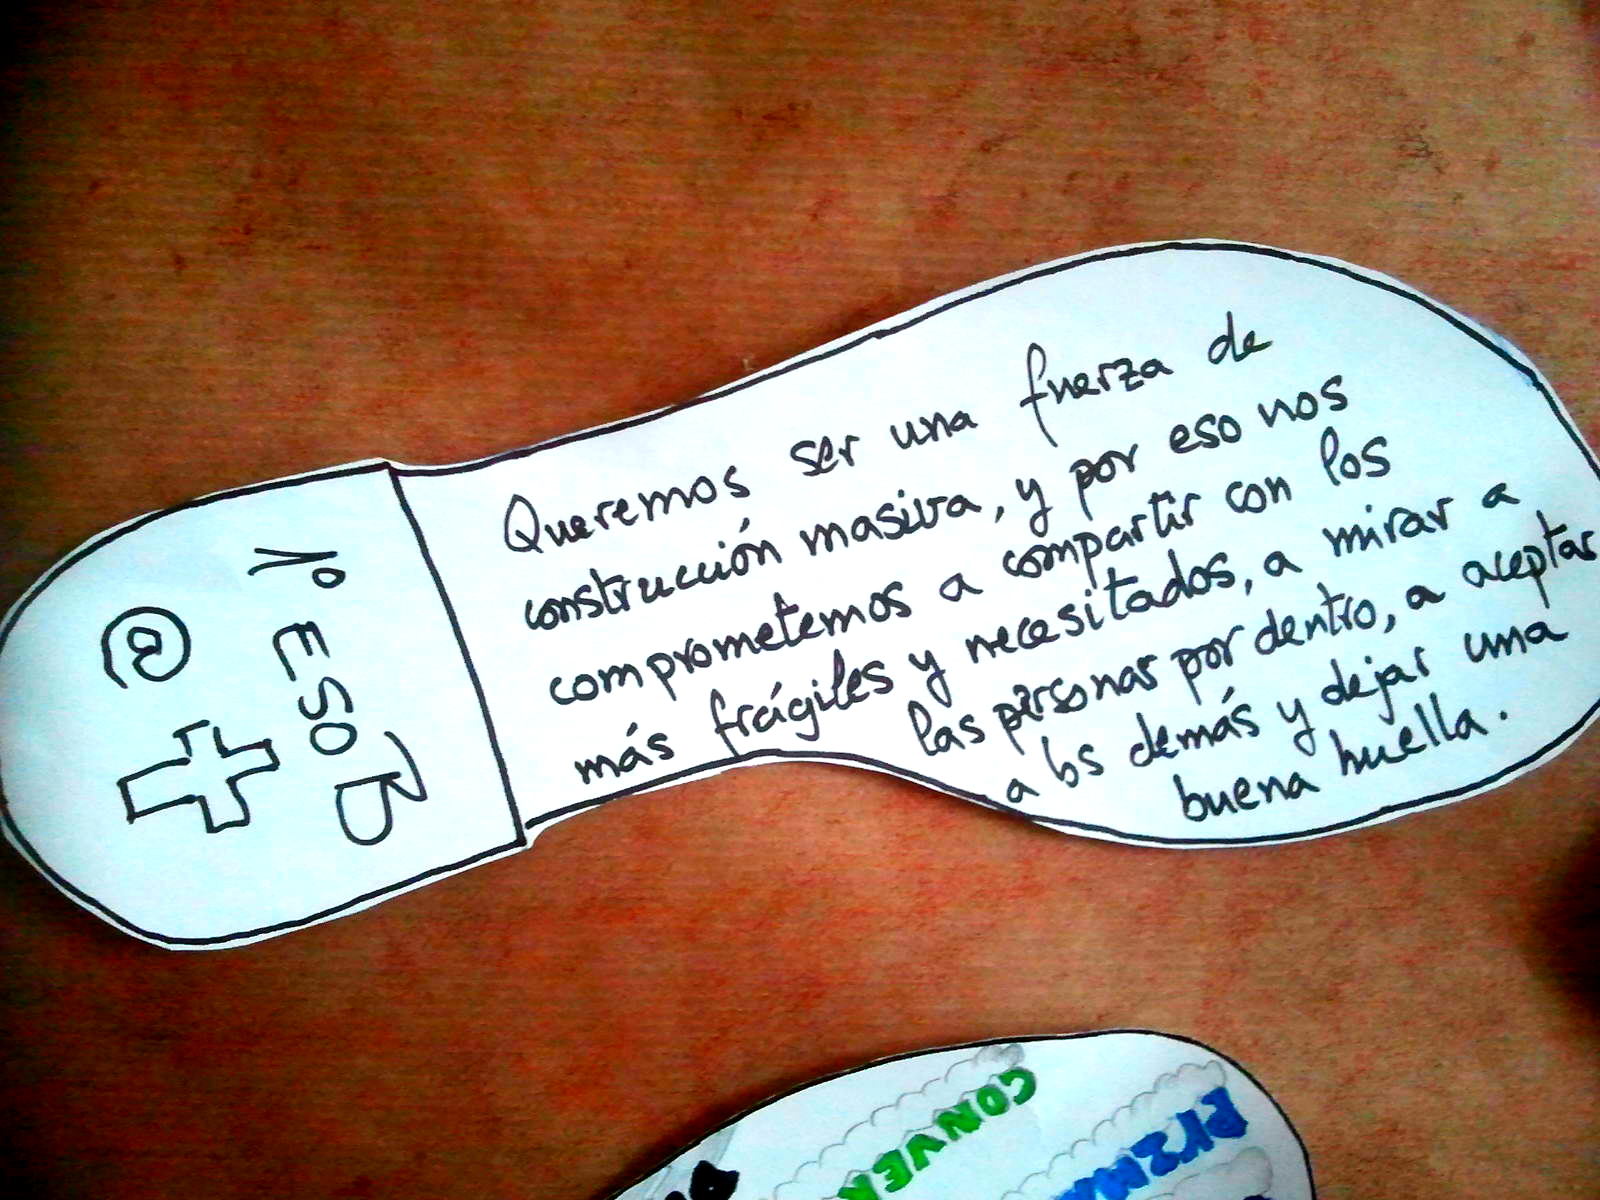 Queremos ser una fuerza de
construcción masiva, y por eso nos
comprometemos a compartir con los
más frágiles y necesitados, a mirar a
las personas por dentro, a aceptar
a los demás y dejar una
buena huella.
1º ESO B
CONVER